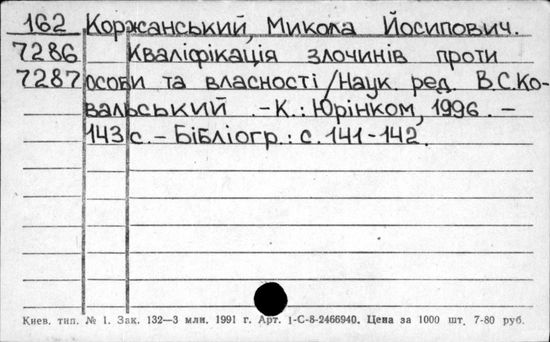 162 Коржанський, Микола Йосипович.
7286 Кваліфікація злочинів проти
7287 особи та власності/Наук. ред. В.С.Ко-
вальський .-К.: Юрінком, 1996. -
143 с. - Бібліогр.: с. 141-142.
Киев. тип. № 1. Зак. 132—3 млн. 1991 г. Арт. 1-С-8-2466940. Цена за 1000 шт. 7-80 руб.